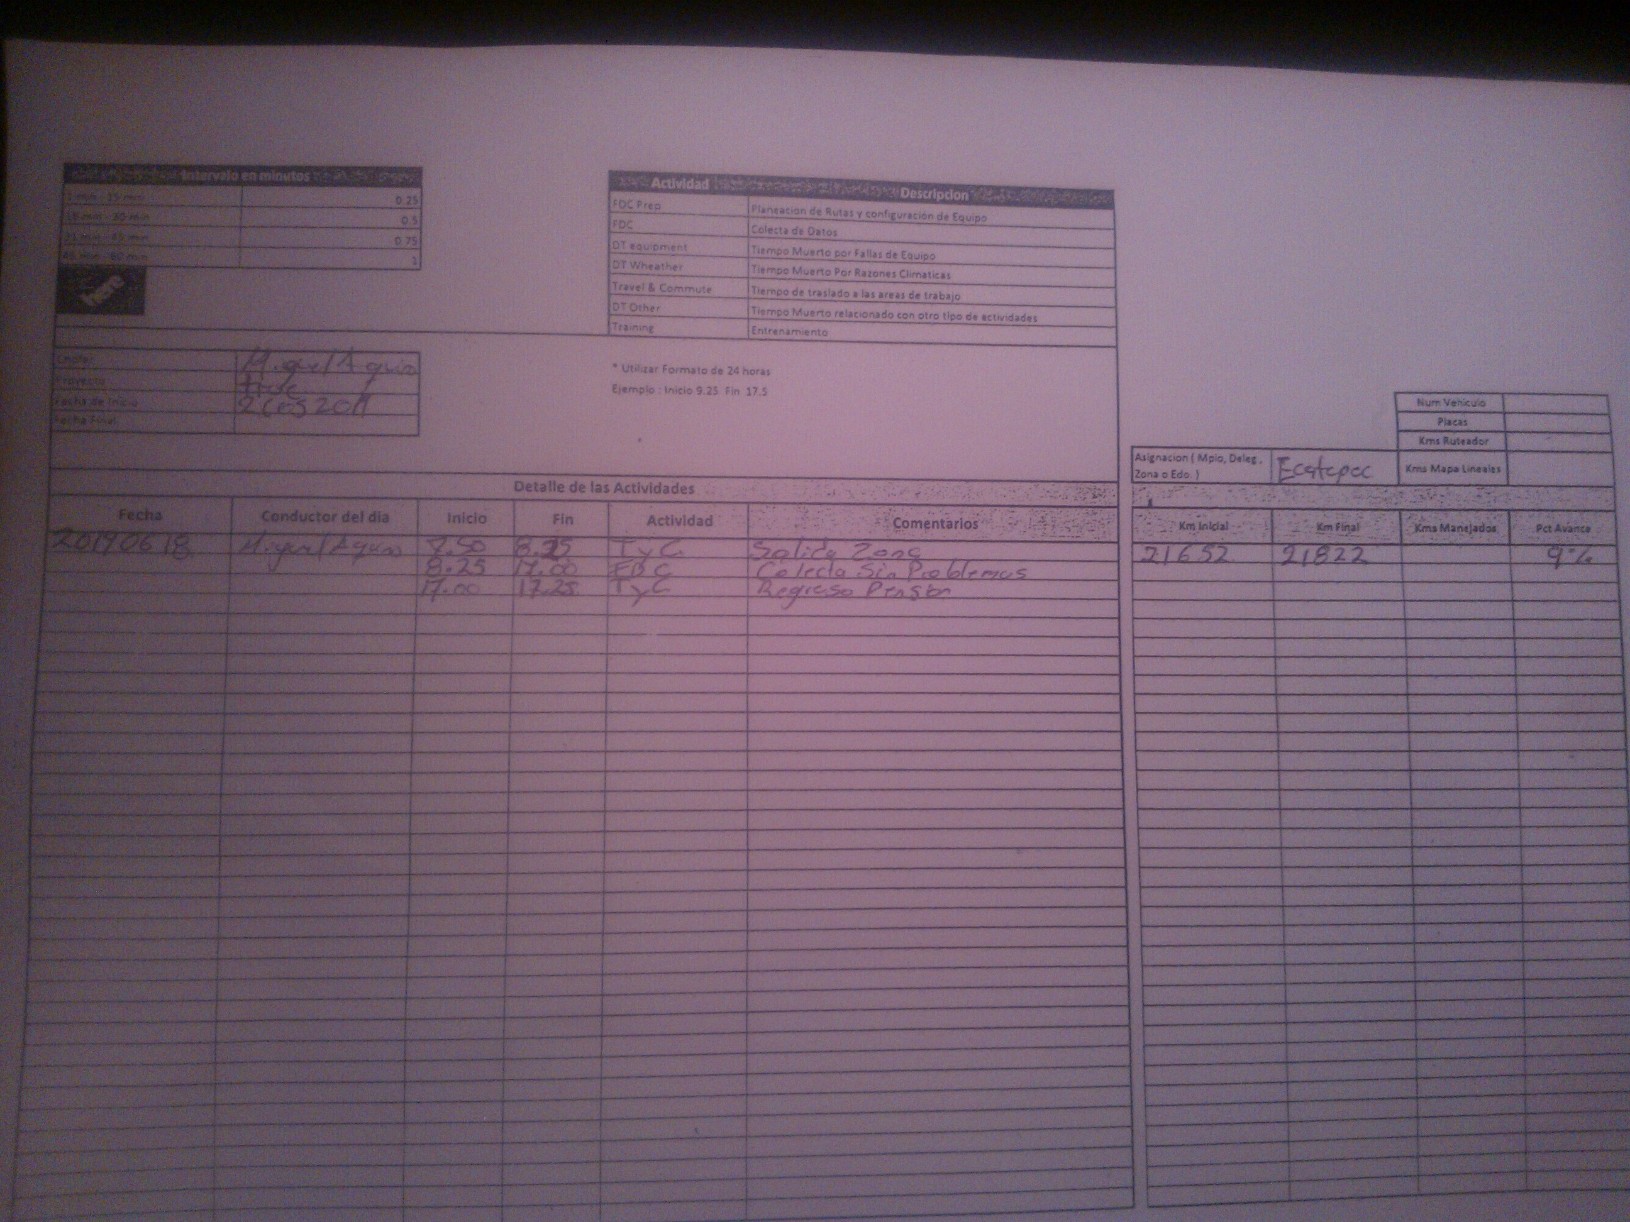 Intervalo en minutos
1 min - 15 min 0.25
15 min - 30 min 0.5
31 min - 45 min 0.75
46 min - 60 min 1
here
Actividad Descripcion
FDC Prep Planeacion de Rutas y configuración de Equipo
FDC Colecta de Datos
DT equipment Tiempo Muerto por Fallas de Equipo
DT Wheather Tiempo Muerto Por Razones Climaticas
Travel & Commute Tiempo de traslado a las areas de trabajo
DT Other Tiempo Muerto relacionado con otro tipo de actividades
Training Entrenamiento
Miguel Aquino
Proyecto
Fecha de Inicio
Fecha Final
* Utilizar Formato de 24 horas
Ejemplo : Inicio 9.25 Fin 17.5
Num Vehiculo
Placas
Kms Ruteador
Kms Mapa Lineales
Asignacion ( Mpio, Deleg , Zona o Edo. ) Ecatepec
Detalle de las Actividades
Fecha Conductor del dia Inicio Fin Actividad Comentarios Km Inicial Km Final Kms Manejados Pct Avance
20190618 Miguel Aquino 7.50 8.25 TyC Salida Zona 21652 21822 9%
8.25 17.00 FDC Colecta Sin Problemas
17.00 17.25 TyC Regreso Pension